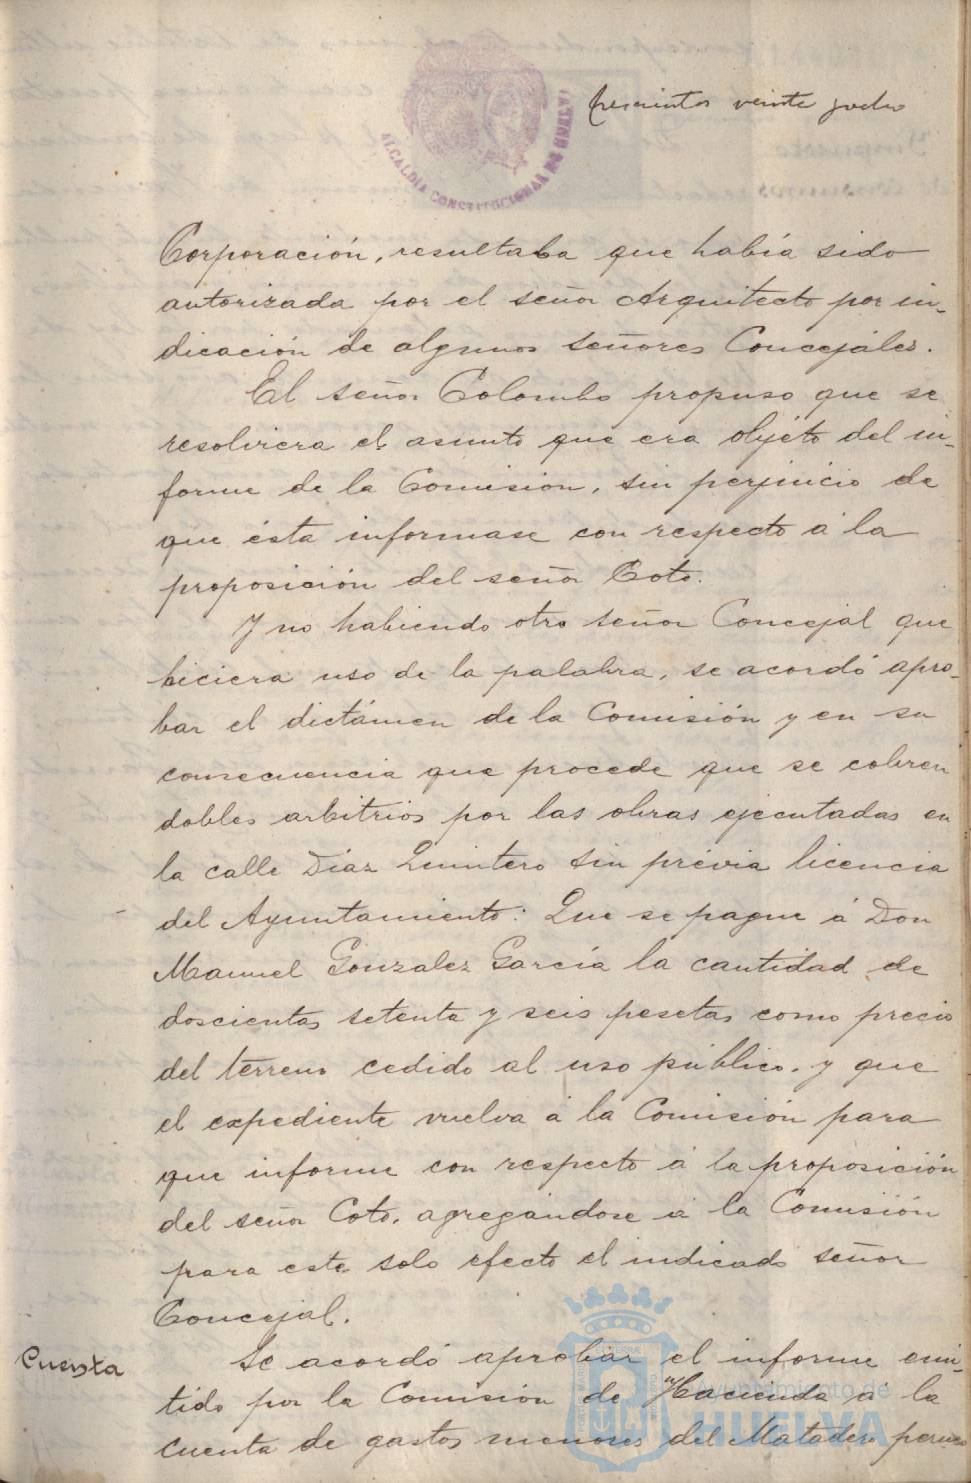 trescientos veinte y ocho
ALCALDIA CONSTITUCIONAL DE HUELVA
Corporación, resultaba que había sido
autorizada por el señor Arquitecto por in-
dicación de algunos señores Concejales.
El señor Colombo propuso que se
resolviera el asunto que era objéto del in-
forme de la Comisión, sin perjuicio de
que ésta informase con respecto á la
proposición del señor Coto.
Y no habiendo otro señor Concejal que
hiciera uso de la palabra, se acordó apro-
bar el dictámen de la Comisión y en su
consecuencia que procede que se cobren
dobles arbitrios por las obras ejecutadas en
la calle Díaz Quintero sin prévia licencia
del Ayuntamiento: Que se pague á Don
Manuel Gonzalez García la cantidad de
doscientas setenta y seis pesetas como precio
del terreno cedido al uso público. y que
el expediente vuelva á la Comisión para
que informe con respecto á la proposición
del señor Coto, agregándose á la Comisión
para este solo efecto el indicado señor
Concejal.
Cuenta
Se acordó aprobar el informe emi-
tido por la Comisión de Hacienda á la
cuenta de gastos menores del Matadero
Ayuntamiento de
HUELVA